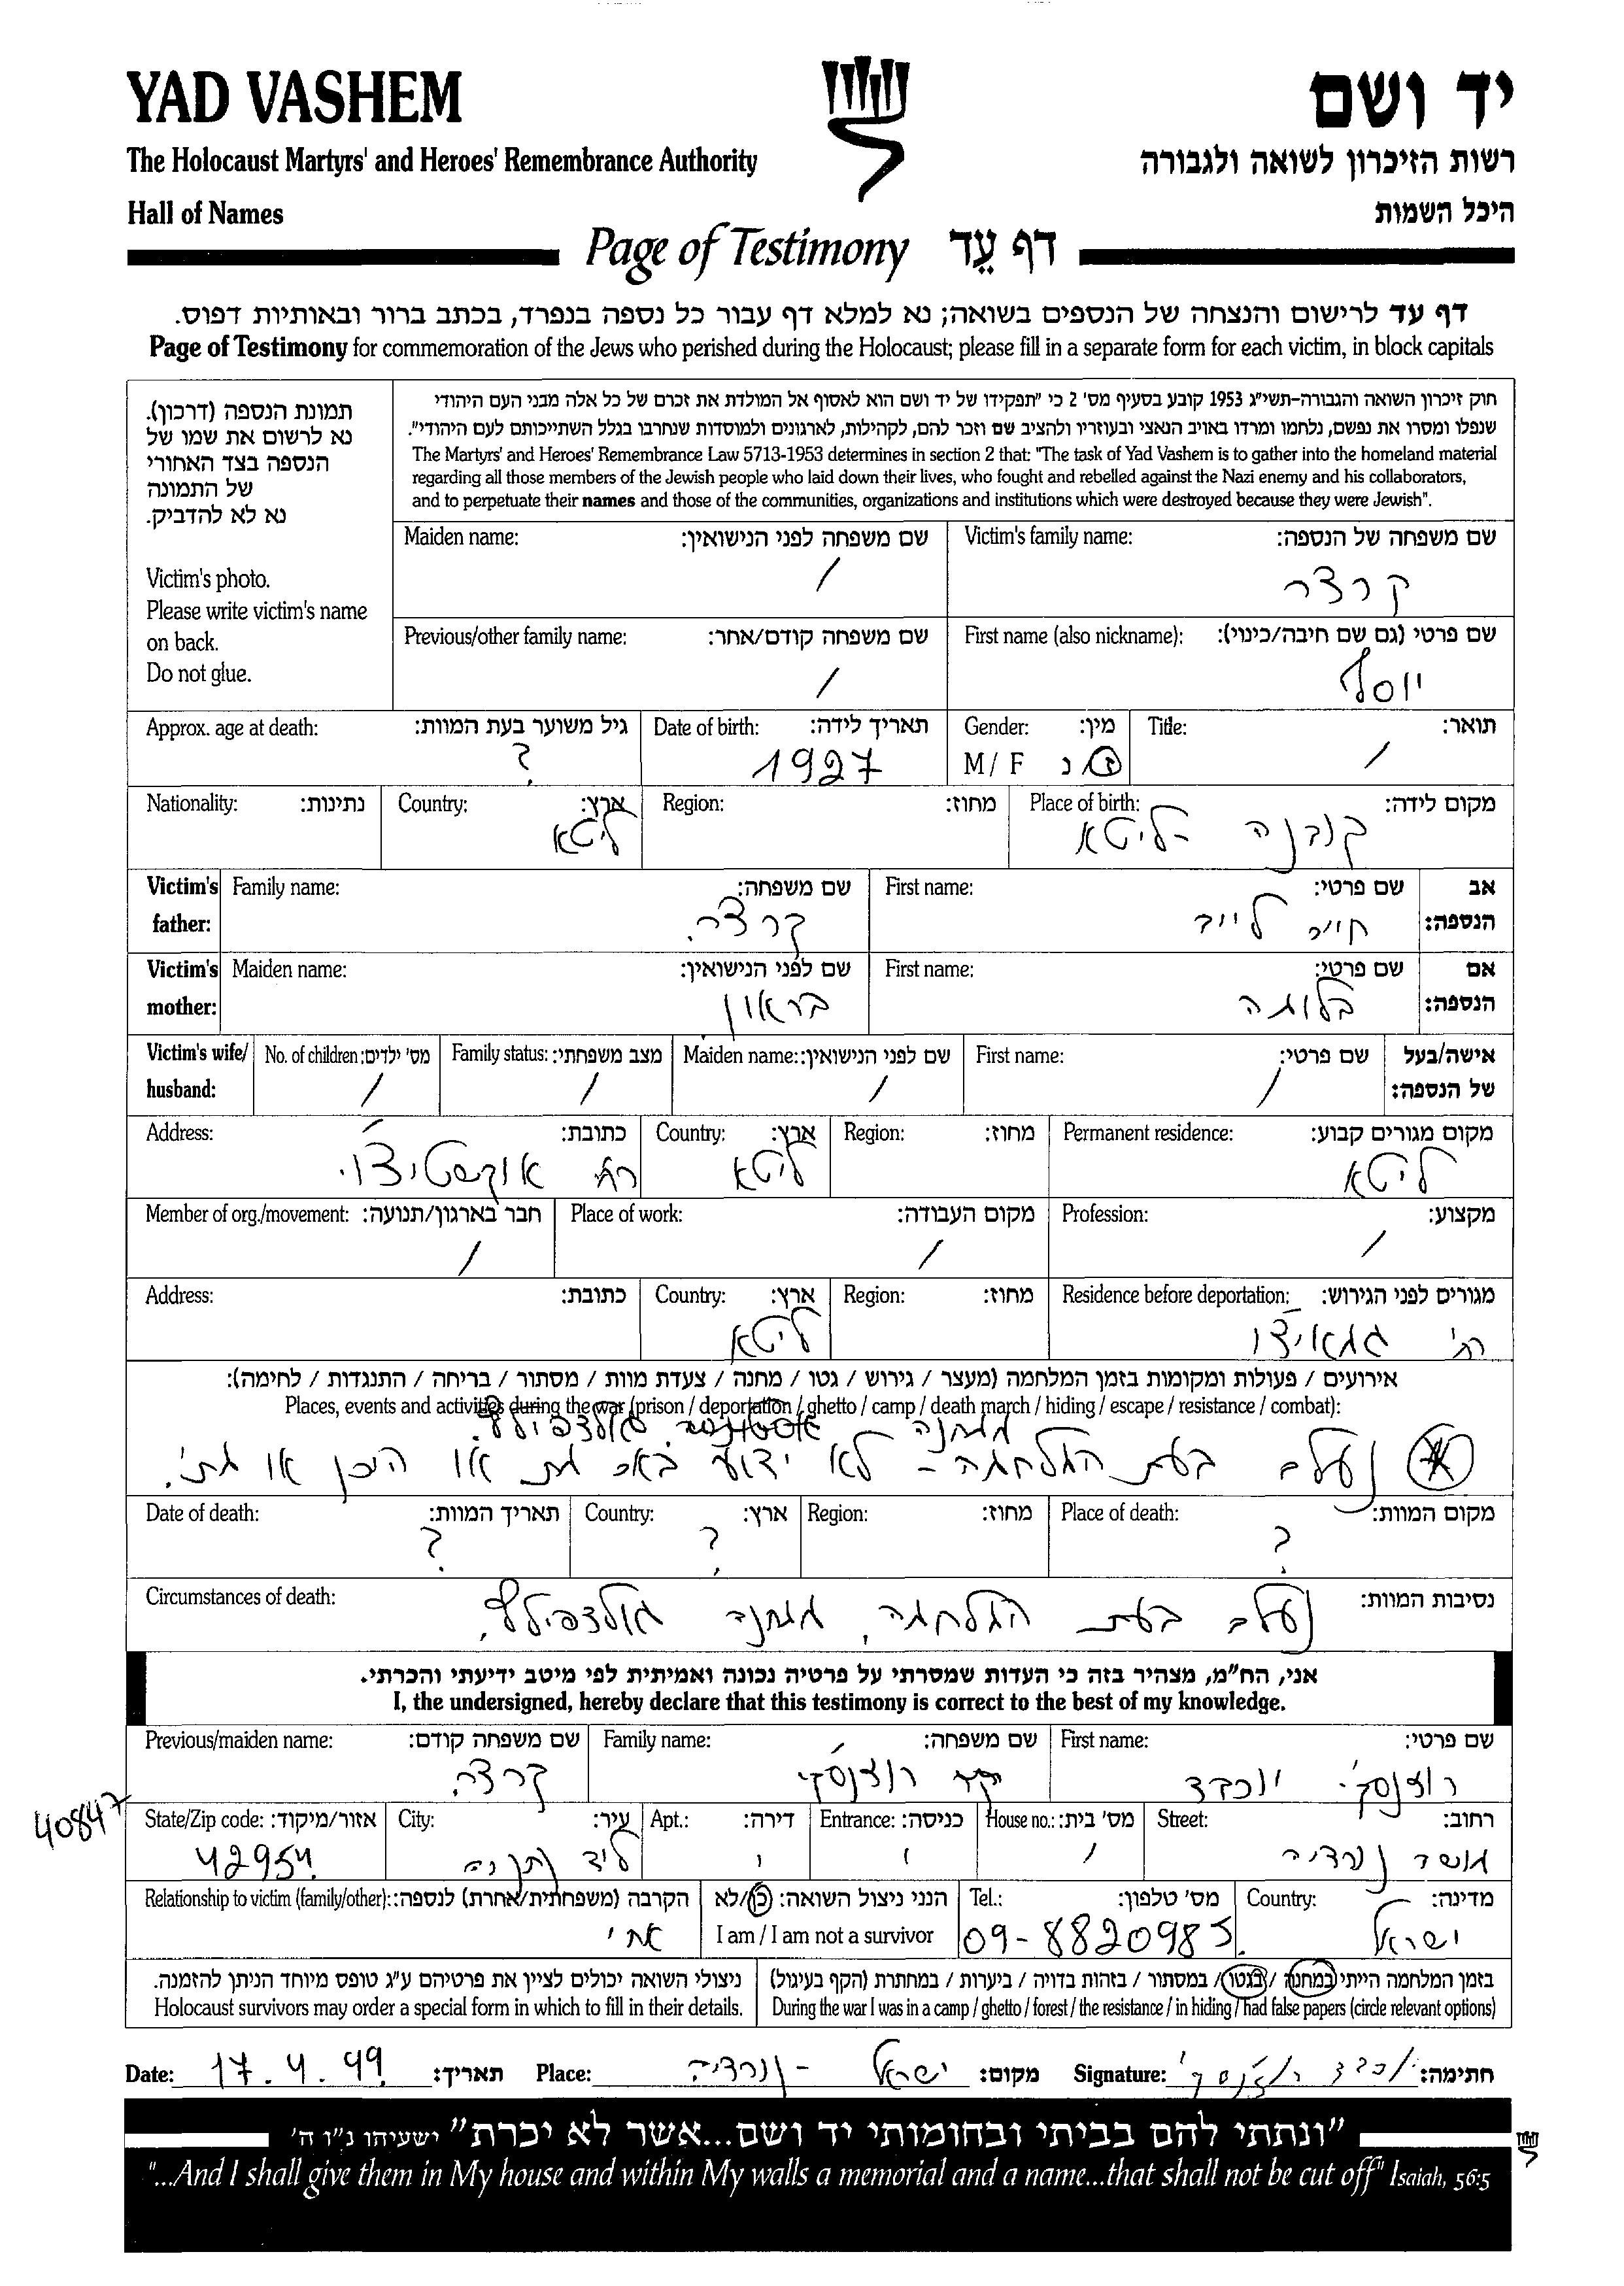 YAD VASHEM
יד ושם
The Holocaust Martyrs' and Heroes' Remembrance Authority
רשות הזיכרון לשואה ולגבורה
Hall of Names
היכל השמות
Page of Testimony דף עֵד
דף עד לרישום והנצחה של הנספים בשואה; נא למלא דף עבור כל נספה בנפרד, בכתב ברור ובאותיות דפוס.
Page of Testimony for commemoration of the Jews who perished during the Holocaust; please fill in a separate form for each victim, in block capitals
תמונת הנספה (דרכון).
נא לרשום את שמו של
הנספה בצד האחורי
של התמונה
נא לא להדביק.
Victim's photo.
Please write victim's name
on back.
Do not glue.
חוק זיכרון השואה והגבורה-תשי"ג 1953 קובע בסעיף מס' 2 כי "תפקידו של יד ושם הוא לאסוף אל המולדת את זכרם של כל אלה מבני העם היהודי
שנפלו ומסרו את נפשם, נלחמו ומרדו באויב הנאצי ובעוזריו ולהציב שם וזכר להם, לקהילות, לארגונים ולמוסדות שנחרבו בגלל השתייכותם לעם היהודי".
The Martyrs' and Heroes' Remembrance Law 5713-1953 determines in section 2 that: "The task of Yad Vashem is to gather into the homeland material
regarding all those members of the Jewish people who laid down their lives, who fought and rebelled against the Nazi enemy and his collaborators,
and to perpetuate their names and those of the communities, organizations and institutions which were destroyed because they were Jewish".
Victim's family name: שם משפחה של הנספה:
קרצר
Maiden name: שם משפחה לפני הנישואין:
/
First name (also nickname): שם פרטי (גם שם חיבה/כינוי):
יוסף
Previous/other family name: שם משפחה קודם/אחר:
/
Title: תואר:
/
Gender: מין:
M / F ז/נ
Date of birth: תאריך לידה:
1927
Approx. age at death: גיל משוער בעת המוות:
?
Place of birth: מקום לידה:
קובנה - ליטא
Region: מחוז:
Country: ארץ:
ליטא
Nationality: נתינות:
Victim's father: אב הנספה:
First name: שם פרטי:
חיים לייב
Family name: שם משפחה:
קרצר.
Victim's mother: אם הנספה:
First name: שם פרטי:
בלומה
Maiden name: שם לפני הנישואין:
בראון
Victim's wife/ husband: אישה/בעל של הנספה:
First name: שם פרטי:
/
Maiden name: שם לפני הנישואין:
/
Family status: מצב משפחתי:
/
No. of children: מס' ילדים:
/
Permanent residence: מקום מגורים קבוע:
ליטא
Region: מחוז:
Country: ארץ:
ליטא
Address: כתובת:
רח'
Profession: מקצוע:
/
Place of work: מקום העבודה:
/
Member of org./movement: חבר בארגון/תנועה:
/
Residence before deportation: מגורים לפני הגירוש:
רח'
Region: מחוז:
Country: ארץ:
ליטא
Address: כתובת:
אירועים / פעולות ומקומות בזמן המלחמה (מעצר / גירוש / גטו / מחנה / צעדת מוות / מסתור / בריחה / התנגדות / לחימה):
Places, events and activities during the war (prison / deportation / ghetto / camp / death march / hiding / escape / resistance / combat):
ממחנה
נעלם בעת המלחמה - לא ידוע באם מת או היכן או מתי.
Place of death: מקום המוות:
?
Region: מחוז:
Country: ארץ:
?
Date of death: תאריך המוות:
?
Circumstances of death: נסיבות המוות:
נעלם בעת המלחמה, ממחנה
אני, הח"מ, מצהיר בזה כי העדות שמסרתי על פרטיה נכונה ואמיתית לפי מיטב ידיעתי והכרתי.
I, the undersigned, hereby declare that this testimony is correct to the best of my knowledge.
First name: שם פרטי:
רוצנסקי יוכבד
Family name: שם משפחה:
רוצנסקי
Previous/maiden name: שם משפחה קודם:
קרצר.
40847
Street: רחוב:
מושב נורדיה
House no.: מס' בית:
/
Entrance: כניסה:
Apt.: דירה:
City: עיר:
ליד נתניה
State/Zip code: אזור/מיקוד:
42954
Country: מדינה:
ישראל
Tel.: מס' טלפון:
09-8820985.
הנני ניצול השואה: כן/לא
I am / I am not a survivor
Relationship to victim (family/other): הקרבה (משפחתית/אחרת) לנספה:
אחי
בזמן המלחמה הייתי במחנה / בגטו / במסתור / בזהות בדויה / ביערות / במחתרת (הקף בעיגול)
During the war I was in a camp / ghetto / forest / the resistance / in hiding / had false papers (circle relevant options)
ניצולי השואה יכולים לציין את פרטיהם ע"ג טופס מיוחד הניתן להזמנה.
Holocaust survivors may order a special form in which to fill in their details.
Date: 17.4.99 תאריך: Place: ישראל - נורדיה מקום: Signature: יוכבד רוצנסקי חתימה:
"ונתתי להם בביתי ובחומותי יד ושם...אשר לא יכרת" ישעיהו נ"ו ה'
"...And I shall give them in My house and within My walls a memorial and a name...that shall not be cut off" Isaiah, 56:5